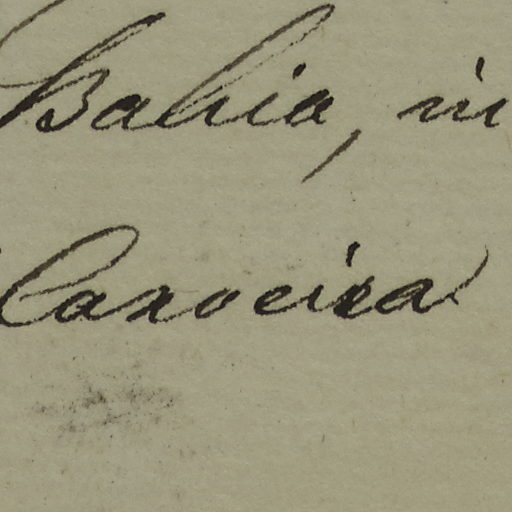 Bahia, in
Caxoeira